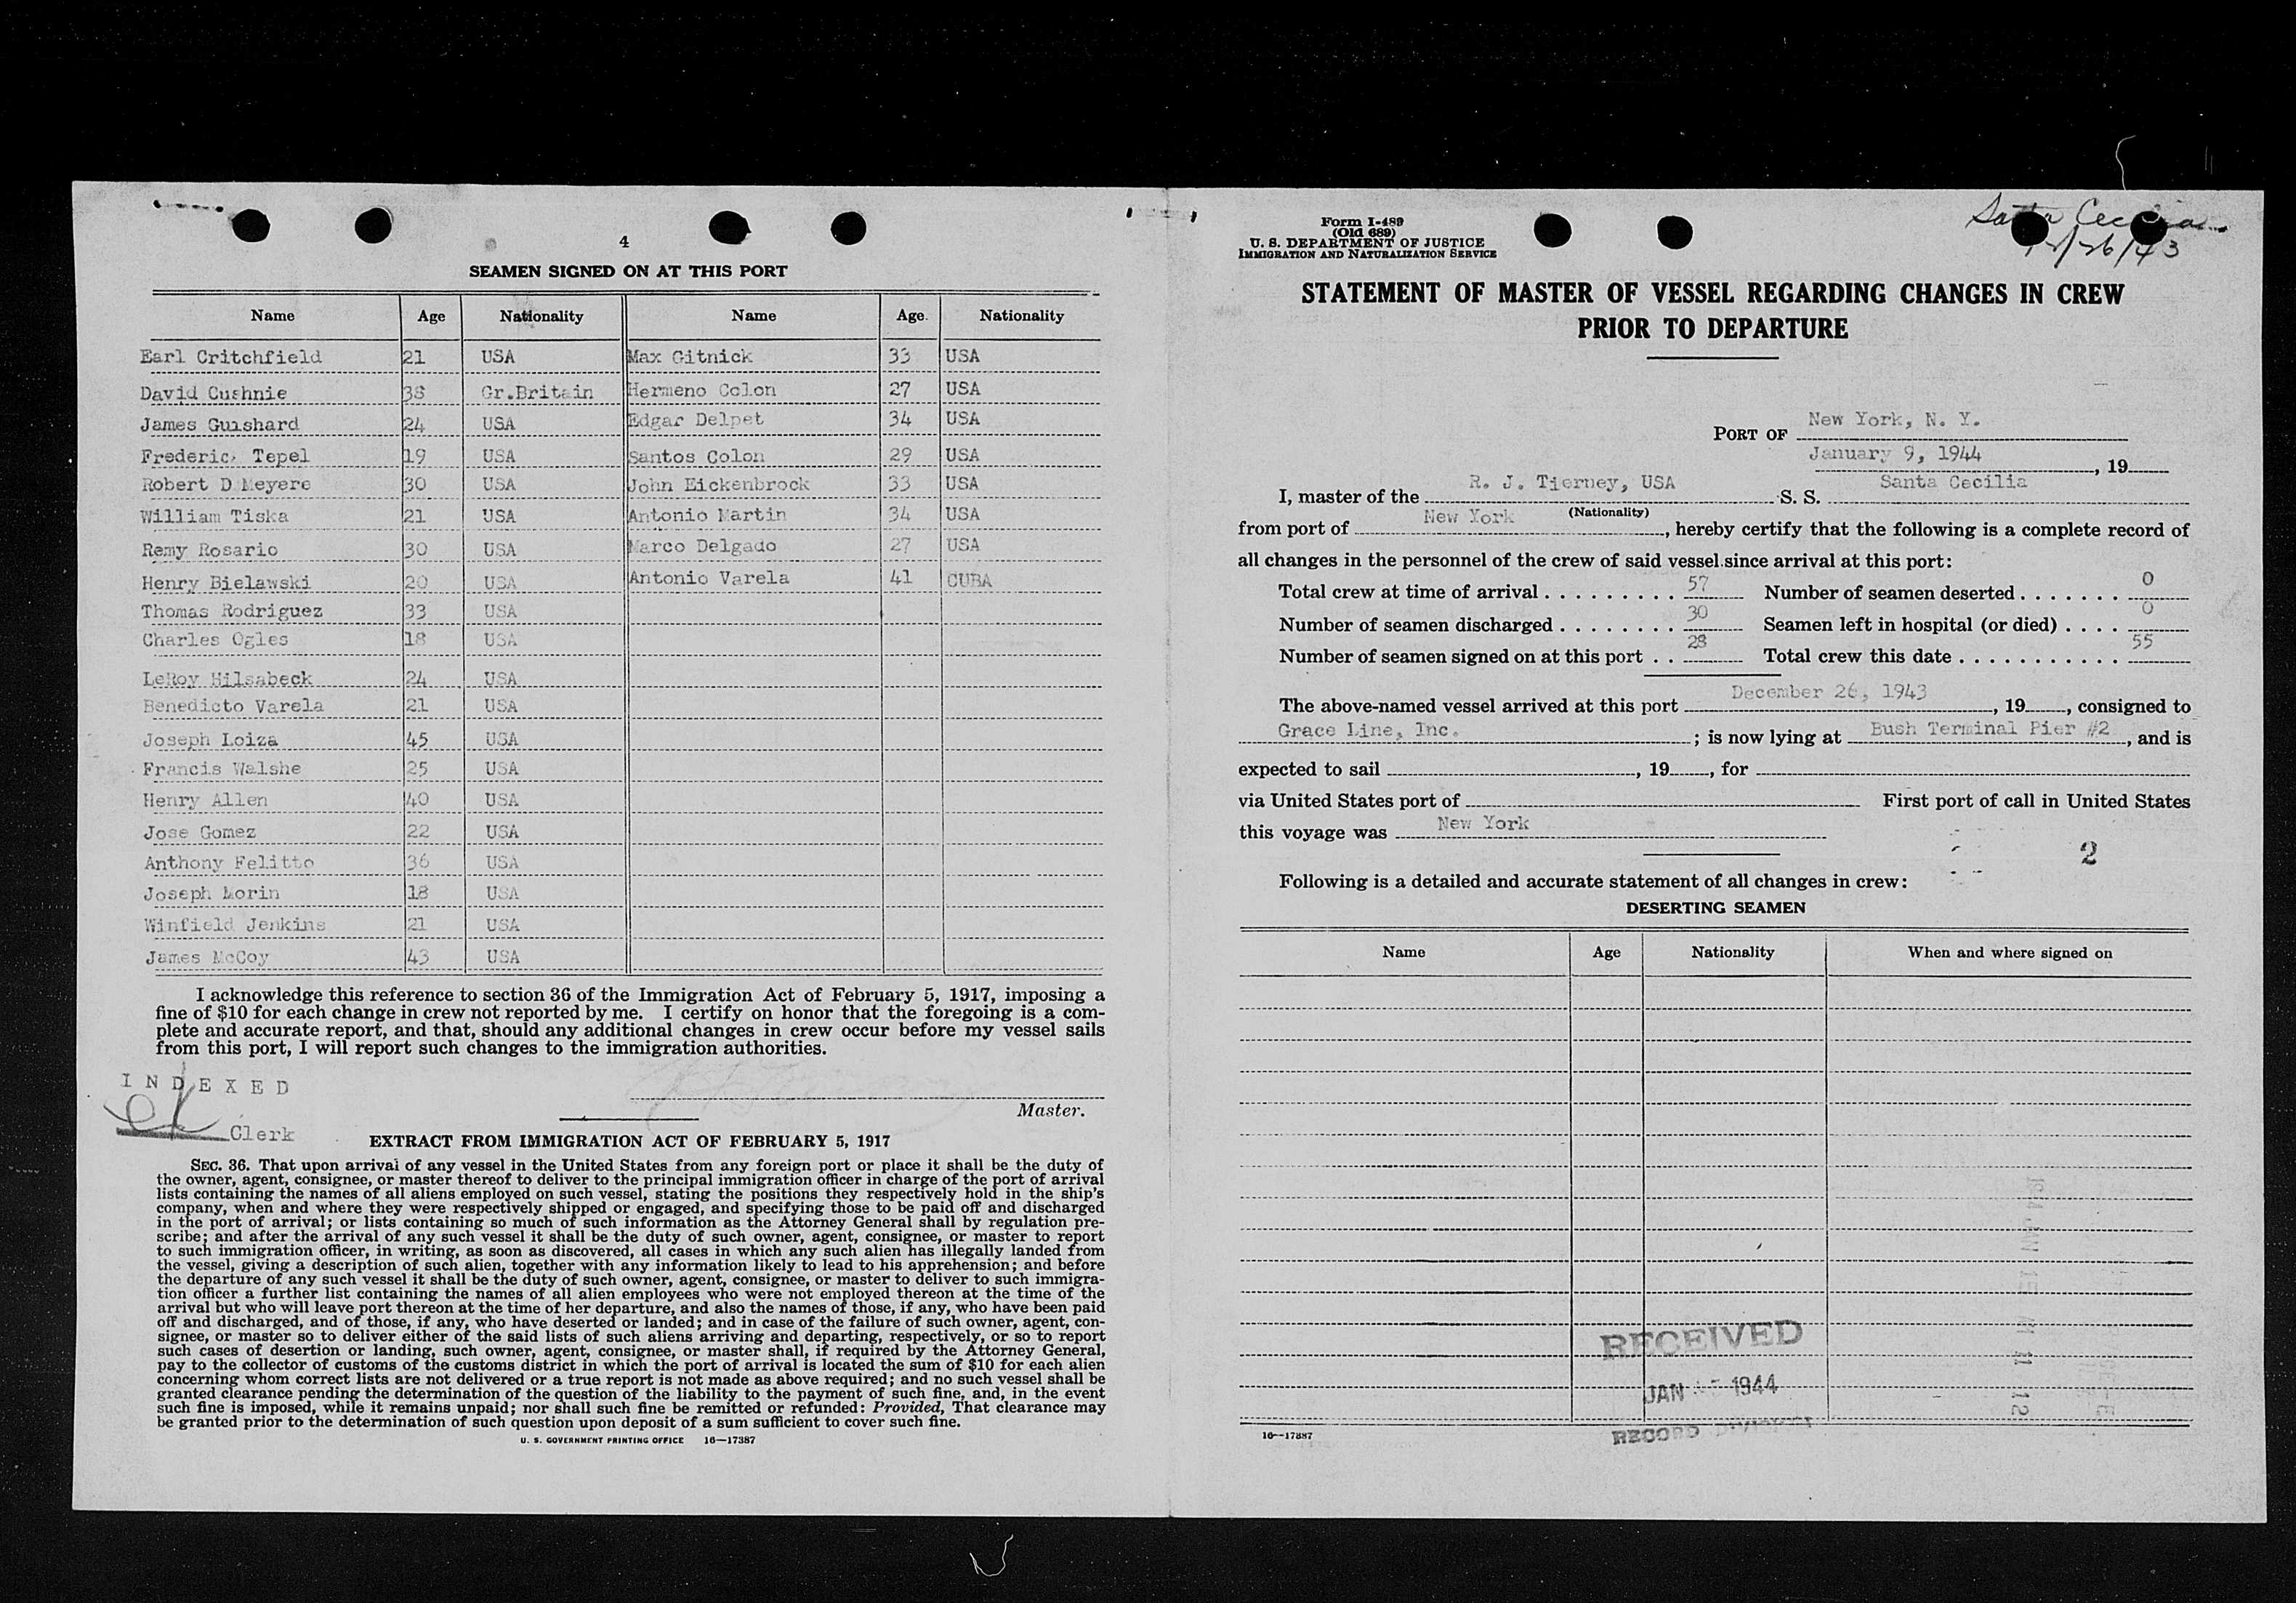 4
SEAMEN SIGNED ON AT THIS PORT
Name Age Nationality Name Age. Nationality
Earl Critchfield 21 USA Max Gitnick 33 USA
David Cushnie 38 Gr.Britain Hermeno Colon 27 USA
James Guishard 24 USA Edgar Delpet 34 USA
Frederic Tepel 19 USA Santos Colon 29 USA
Robert D Meyere 30 USA John Eickenbrock 33 USA
William Tiska 21 USA Antonio Martin 34 USA
Remy Rosario 30 USA Marco Delgado 27 USA
Henry Bielawski 20 USA Antonio Varela 41 CUBA
Thomas Rodriguez 33 USA
Charles Ogles 18 USA
LeRoy Hilsabeck 24 USA
Benedicto Varela 21 USA
Joseph Loiza 45 USA
Francis Walshe 25 USA
Henry Allen 40 USA
Jose Gomez 22 USA
Anthony Felitto 36 USA
Joseph Morin 18 USA
Winfield Jenkins 21 USA
James McCoy 43 USA
I acknowledge this reference to section 36 of the Immigration Act of February 5, 1917, imposing a
fine of $10 for each change in crew not reported by me. I certify on honor that the foregoing is a com-
plete and accurate report, and that, should any additional changes in crew occur before my vessel sails
from this port, I will report such changes to the immigration authorities.
INDEXED
Master.
Clerk
EXTRACT FROM IMMIGRATION ACT OF FEBRUARY 5, 1917
SEC. 36. That upon arrival of any vessel in the United States from any foreign port or place it shall be the duty of
the owner, agent, consignee, or master thereof to deliver to the principal immigration officer in charge of the port of arrival
lists containing the names of all aliens employed on such vessel, stating the positions they respectively hold in the ship's
company, when and where they were respectively shipped or engaged, and specifying those to be paid off and discharged
in the port of arrival; or lists containing so much of such information as the Attorney General shall by regulation pre-
scribe; and after the arrival of any such vessel it shall be the duty of such owner, agent, consignee, or master to report
to such immigration officer, in writing, as soon as discovered, all cases in which any such alien has illegally landed from
the vessel, giving a description of such alien, together with any information likely to lead to his apprehension; and before
the departure of any such vessel it shall be the duty of such owner, agent, consignee, or master to deliver to such immigra-
tion officer a further list containing the names of all alien employees who were not employed thereon at the time of the
arrival but who will leave port thereon at the time of her departure, and also the names of those, if any, who have been paid
off and discharged, and of those, if any, who have deserted or landed; and in case of the failure of such owner, agent, con-
signee, or master so to deliver either of the said lists of such aliens arriving and departing, respectively, or so to report
such cases of desertion or landing, such owner, agent, consignee, or master shall, if required by the Attorney General,
pay to the collector of customs of the customs district in which the port of arrival is located the sum of $10 for each alien
concerning whom correct lists are not delivered or a true report is not made as above required; and no such vessel shall be
granted clearance pending the determination of the question of the liability to the payment of such fine, and, in the event
such fine is imposed, while it remains unpaid; nor shall such fine be remitted or refunded: Provided, That clearance may
be granted prior to the determination of such question upon deposit of a sum sufficient to cover such fine.
U. S. GOVERNMENT PRINTING OFFICE 16—17387
Form I-489
(Old 689)
U. S. DEPARTMENT OF JUSTICE
IMMIGRATION AND NATURALIZATION SERVICE
Santa Cecilia
12/26/43
STATEMENT OF MASTER OF VESSEL REGARDING CHANGES IN CREW
PRIOR TO DEPARTURE
PORT OF New York, N. Y.
January 9, 1944, 19
I, master of the R. J. Tierney, USA S. S. Santa Cecilia
(Nationality)
from port of New York, hereby certify that the following is a complete record of
all changes in the personnel of the crew of said vessel since arrival at this port:
Total crew at time of arrival 57 Number of seamen deserted 0
Number of seamen discharged 30 Seamen left in hospital (or died) 0
Number of seamen signed on at this port 28 Total crew this date 55
The above-named vessel arrived at this port December 26, 1943, 19, consigned to
Grace Line, Inc.; is now lying at Bush Terminal Pier #2, and is
expected to sail, 19, for
via United States port of First port of call in United States
this voyage was New York
2
Following is a detailed and accurate statement of all changes in crew:
DESERTING SEAMEN
Name Age Nationality When and where signed on
RECEIVED
JAN 1944
RECORD DIVISION
16—17387